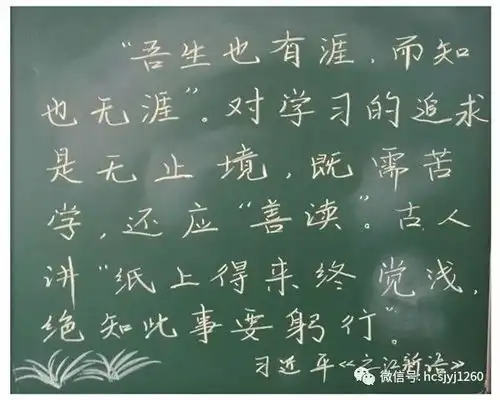 “吾生也有涯，而知
也无涯”。对学习的追求
是无止境，既需苦
学，还应“善读”。古人
讲“纸上得来终觉浅，
绝知此事要躬行”。
习近平《之江新语》
微信号: hcsjyj1260